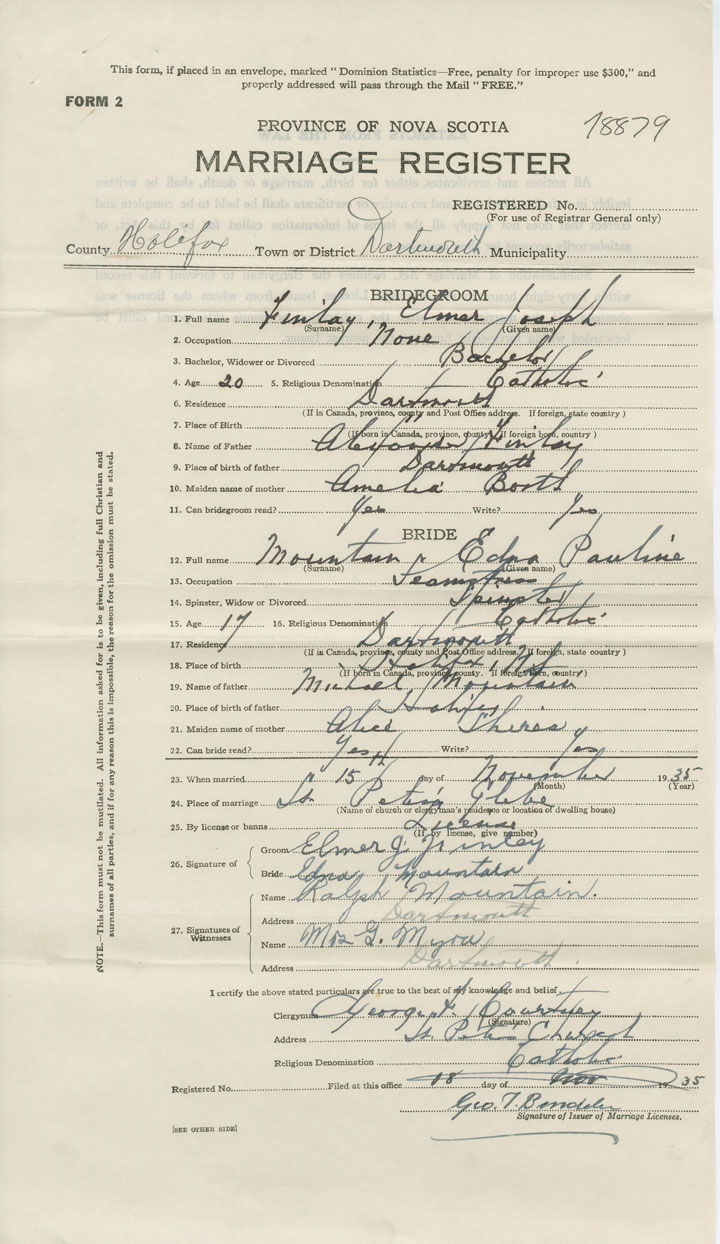 This form, if placed in an envelope, marked "Dominion Statistics—Free, penalty for improper use $300," and
properly addressed will pass through the Mail "FREE."
FORM 2
18879
PROVINCE OF NOVA SCOTIA
MARRIAGE REGISTER
REGISTERED No.
(For use of Registrar General only)
County Halifax Town or District Dartmouth Municipality
BRIDEGROOM
1. Full name Finlay, Elmer Joseph
(Surname) (Given name)
2. Occupation None
3. Bachelor, Widower or Divorced Bachelor
4. Age 20 5. Religious Denomination Catholic
6. Residence Dartmouth
(If in Canada, province, county and Post Office address. If foreign, state country)
7. Place of Birth "
(If born in Canada, province, county. If foreign born, country)
8. Name of Father Alexander Finlay
9. Place of birth of father Dartmouth
10. Maiden name of mother Amelia Boots
11. Can bridegroom read? Yes Write? Yes
BRIDE
12. Full name Mountain, Edna Pauline
(Surname) (Given name)
13. Occupation Seamstress
14. Spinster, Widow or Divorced Spinster
15. Age 17 16. Religious Denomination Catholic
17. Residence Dartmouth
(If in Canada, province, county and Post Office address. If foreign, state country)
18. Place of birth Halifax, N.S.
(If born in Canada, province, county. If foreign born, country)
19. Name of father Michael Mountain
20. Place of birth of father Halifax
21. Maiden name of mother Alice
22. Can bride read? Yes Write? Yes
23. When married 15 day of November 1935
(Month) (Year)
24. Place of marriage St Peter's Glebe
(Name of church or clergyman's residence or location of dwelling house)
25. By license or banns License
(If by license, give number)
26. Signature of Groom Elmer J. Finley
Bride Edna Mountain
27. Signatures of Witnesses
Name Ralph Mountain.
Address Dartmouth
Name Mrs G. Myra
Address Dartmouth.
I certify the above stated particulars are true to the best of my knowledge and belief.
Clergyman George F. Courtney
(Signature)
Address St Peters Church
Religious Denomination Catholic
Registered No. Filed at this office 18 day of Nov 1935
Geo. T.
Signature of Issuer of Marriage Licenses.
[SEE OTHER SIDE]
NOTE.—This form must not be mutilated. All information asked for is to be given, including full Christian and
surnames of all parties, and if for any reason this is impossible, the reason for the omission must be stated.